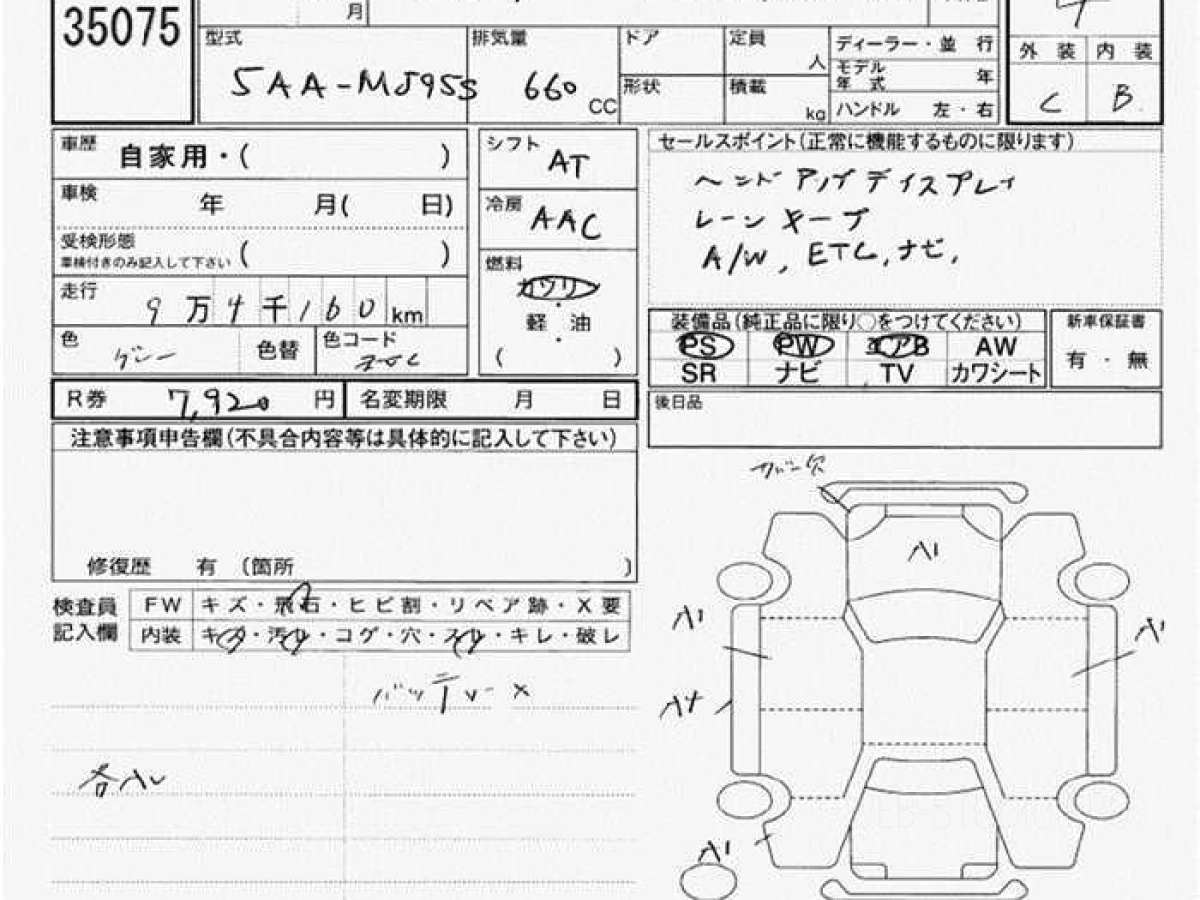 35075
月
4
型式 5AA-MJ95S
排気量 660 CC
ドア
形状
定員 人
積載 kg
ディーラー・並行
モデル年式 年
ハンドル 左・右
外装 内装
C B
車歴 自家用・( )
車検 年 月( 日)
受検形態 ( )
車検付きのみ記入して下さい
走行 9万4千160km
色 グレー 色替 色コード
シフト AT
冷房 AAC
燃料 ガソリン
・
軽油
・
( )
セールスポイント(正常に機能するものに限ります)
ヘッドアップディスプレイ
レーンキープ
A/W, ETC, ナビ,
装備品(純正品に限り○をつけてください)
PS PW エアB AW
SR ナビ TV カワシート
新車保証書
有・無
R券 7,920円 名変期限 月 日
後日品
注意事項申告欄(不具合内容等は具体的に記入して下さい)
修復歴 有 〔箇所 〕
検査員記入欄
FW キズ・飛石・ヒビ割・リペア跡・X要
内装 キズ・汚レ・コゲ・穴・スレ・キレ・破レ
バッテリー ×
各ハレ
カバー欠
A1
A1
A1
A4
A1